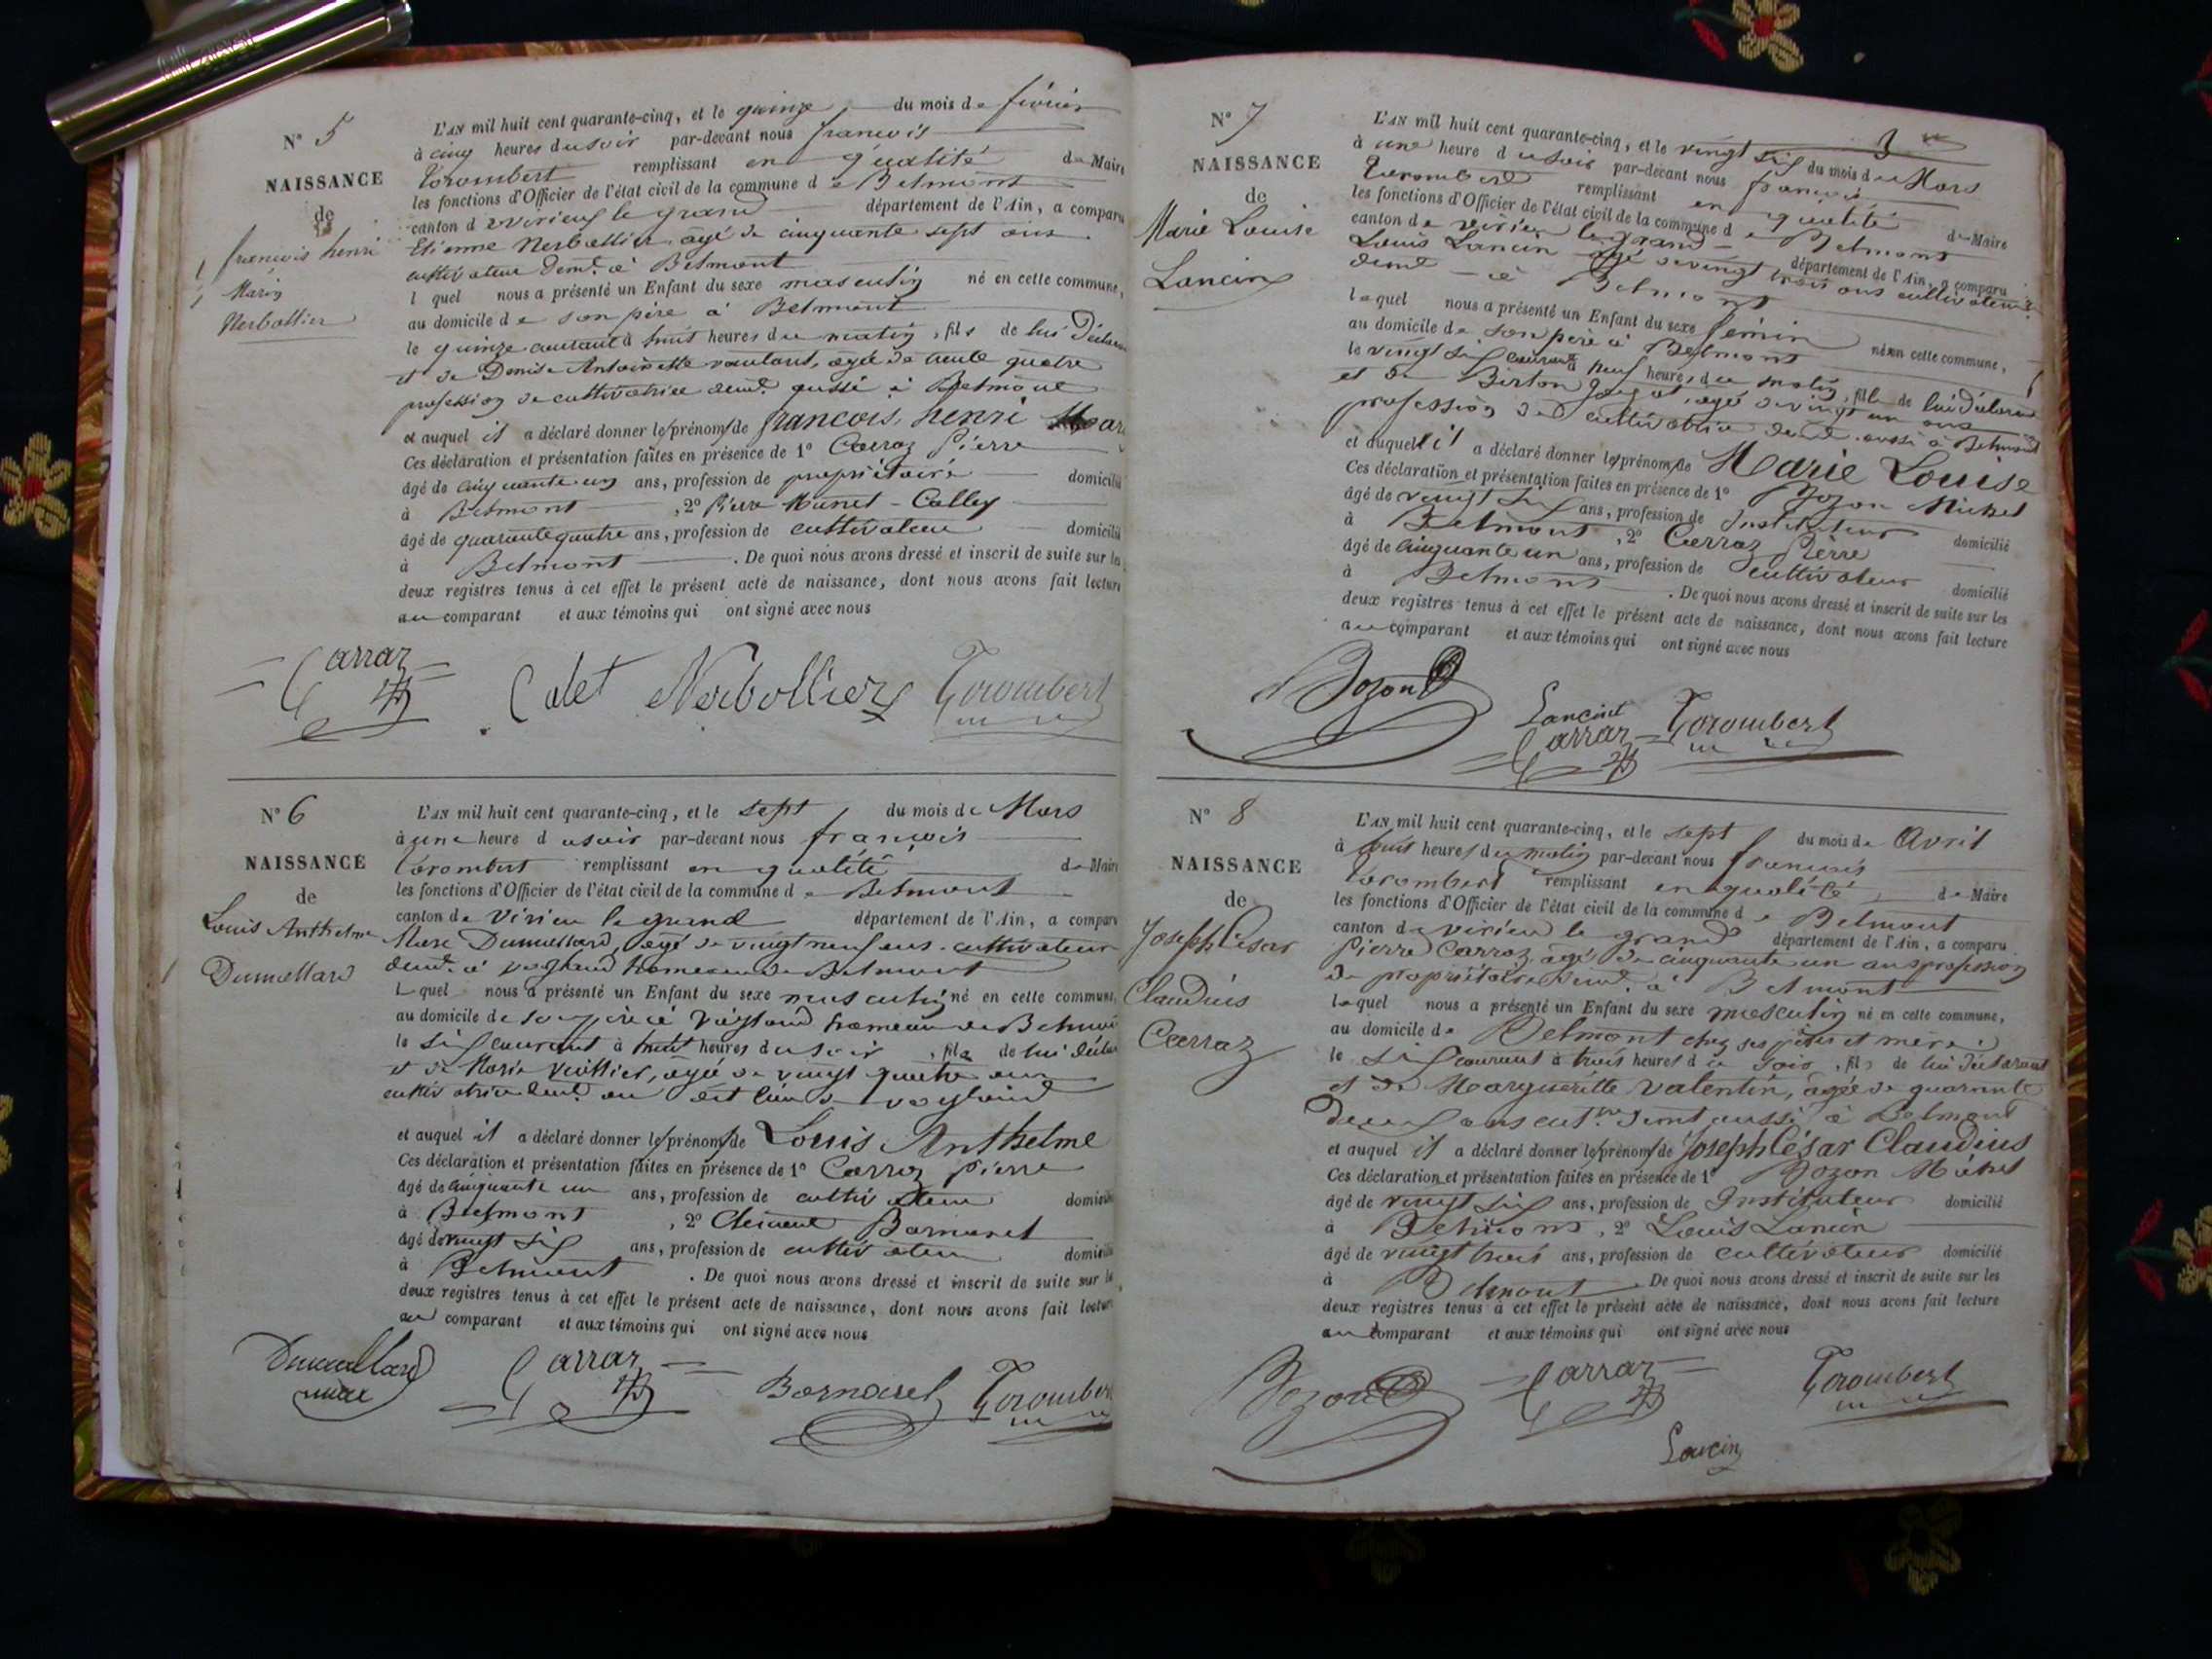 N° 5
NAISSANCE
de
francois henri
Marin
Nerbollier
L'AN mil huit cent quarante-cinq, et le quinze du mois de février
à cinq heures du soir par-devant nous francois
Torombert remplissant en qualité de Maire
les fonctions d'Officier de l'état civil de la commune de Belmont
canton de virieu le grand département de l'Ain, a comparu
Etienne Nerbollier agé de cinquante sept ans
cultivateur demt. à Belmont
lequel nous a présenté un Enfant du sexe masculin né en cette commune,
au domicile de son père à Belmont
le quinze courant à huit heures du matin, fils de lui Déclarant
et de Denise Antoinette vautaret, agée de trente quatre
profession de cultivatrice demt. aussi à Belmont
et auquel il a déclaré donner les prénoms de francois, henri Mar
Ces déclaration et présentation faites en présence de 1° Carraz Pierre
âgé de cinquante un ans, profession de propriétaire domicilié
à Belmont, 2° Pierre Munet-Colley
âgé de quarante quatre ans, profession de cultivateur domicilié
à Belmont. De quoi nous avons dressé et inscrit de suite sur les
deux registres tenus à cet effet le présent acte de naissance, dont nous avons fait lecture
au comparant et aux témoins qui ont signé avec nous
Carraz Colet Nerbollier Torombert
N° 6
NAISSANCE
de
Louis Anthelme
Dumollard
L'AN mil huit cent quarante-cinq, et le sept du mois de Mars
à une heure du soir par-devant nous francois
Torombert remplissant en qualité de Maire
les fonctions d'Officier de l'état civil de la commune de Belmont
canton de Virieu le grand département de l'Ain, a comparu
Marc Dumollard, agé de vingt neuf ans cultivateur
demt. à vogland hameau de Belmont
Lequel nous a présenté un Enfant du sexe masculin né en cette commune,
au domicile de son père à Vogland hameau de Belmont
le six courant à huit heures du soir, fils de lui décla
et de Marie viollier, agée de vingt quatre ans
cultivatrice demt. au dit lieu de vogland
et auquel il a déclaré donner les prénoms de Louis Anthelme
Ces déclaration et présentation faites en présence de 1° Carraz pierre
âgé de cinquante un ans, profession de cultivateur domicilié
à Belmont, 2° Clément Bornarel
âgé de vingt six ans, profession de cultivateur domicilié
à Belmont. De quoi nous avons dressé et inscrit de suite sur les
deux registres tenus à cet effet le présent acte de naissance, dont nous avons fait lecture
au comparant et aux témoins qui ont signé avec nous
Dumollard marc Carraz Bornarel Torombert
3
N° 7
NAISSANCE
de
Marie Louise
Lancin
L'AN mil huit cent quarante-cinq, et le vingt six du mois de Mars
à une heure du soir par-devant nous francois
Torombert remplissant en qualité de Maire
les fonctions d'Officier de l'état civil de la commune de Belmont
canton de virieu le grand département de l'Ain, a comparu
Louis Lancin agé de vingt trois ans cultivateur
demt à Belmont
lequel nous a présenté un Enfant du sexe féminin né en cette commune,
au domicile de son père à Belmont
le vingt six courant à neuf heures du matin, fille de lui déclarant
et de Berton, agée de vingt un ans
profession de cultivatrice demt. aussi à Belmont
et auquel il a déclaré donner les prénoms de Marie Louise
Ces déclaration et présentation faites en présence de 1° Bozon Michel
âgé de vingt six ans, profession de Instituteur domicilié
à Belmont, 2° Carraz Pierre
âgé de cinquante un ans, profession de cultivateur domicilié
à Belmont. De quoi nous avons dressé et inscrit de suite sur les
deux registres tenus à cet effet le présent acte de naissance, dont nous avons fait lecture
au comparant et aux témoins qui ont signé avec nous
Bozon Lancin Carraz Torombert
N° 8
NAISSANCE
de
Joseph César
Claudius
Carraz
L'AN mil huit cent quarante-cinq, et le sept du mois de Avril
à huit heures du matin par-devant nous francois
Torombert remplissant en qualité de Maire
les fonctions d'Officier de l'état civil de la commune de Belmont
canton de virieu le grand département de l'Ain, a comparu
Pierre Carraz, agé de cinquante un ans profession
de propriétaire demt. à Belmont
lequel nous a présenté un Enfant du sexe masculin né en cette commune,
au domicile de Belmont chez ses père et mère
le six courant à trois heures du soir, fils de lui déclarant
et de Margueritte valentin, agée de quarante
deux ans cult.ce demt aussi à Belmont
et auquel il a déclaré donner les prénoms de Joseph César Claudius
Ces déclaration et présentation faites en présence de 1° Bozon Michel
âgé de vingt six ans, profession de Instituteur domicilié
à Belmont, 2° Louis Lancin
âgé de vingt trois ans, profession de cultivateur domicilié
à Belmont De quoi nous avons dressé et inscrit de suite sur les
deux registres tenus à cet effet le présent acte de naissance, dont nous avons fait lecture
au comparant et aux témoins qui ont signé avec nous
Bozon Carraz Torombert
Lancin